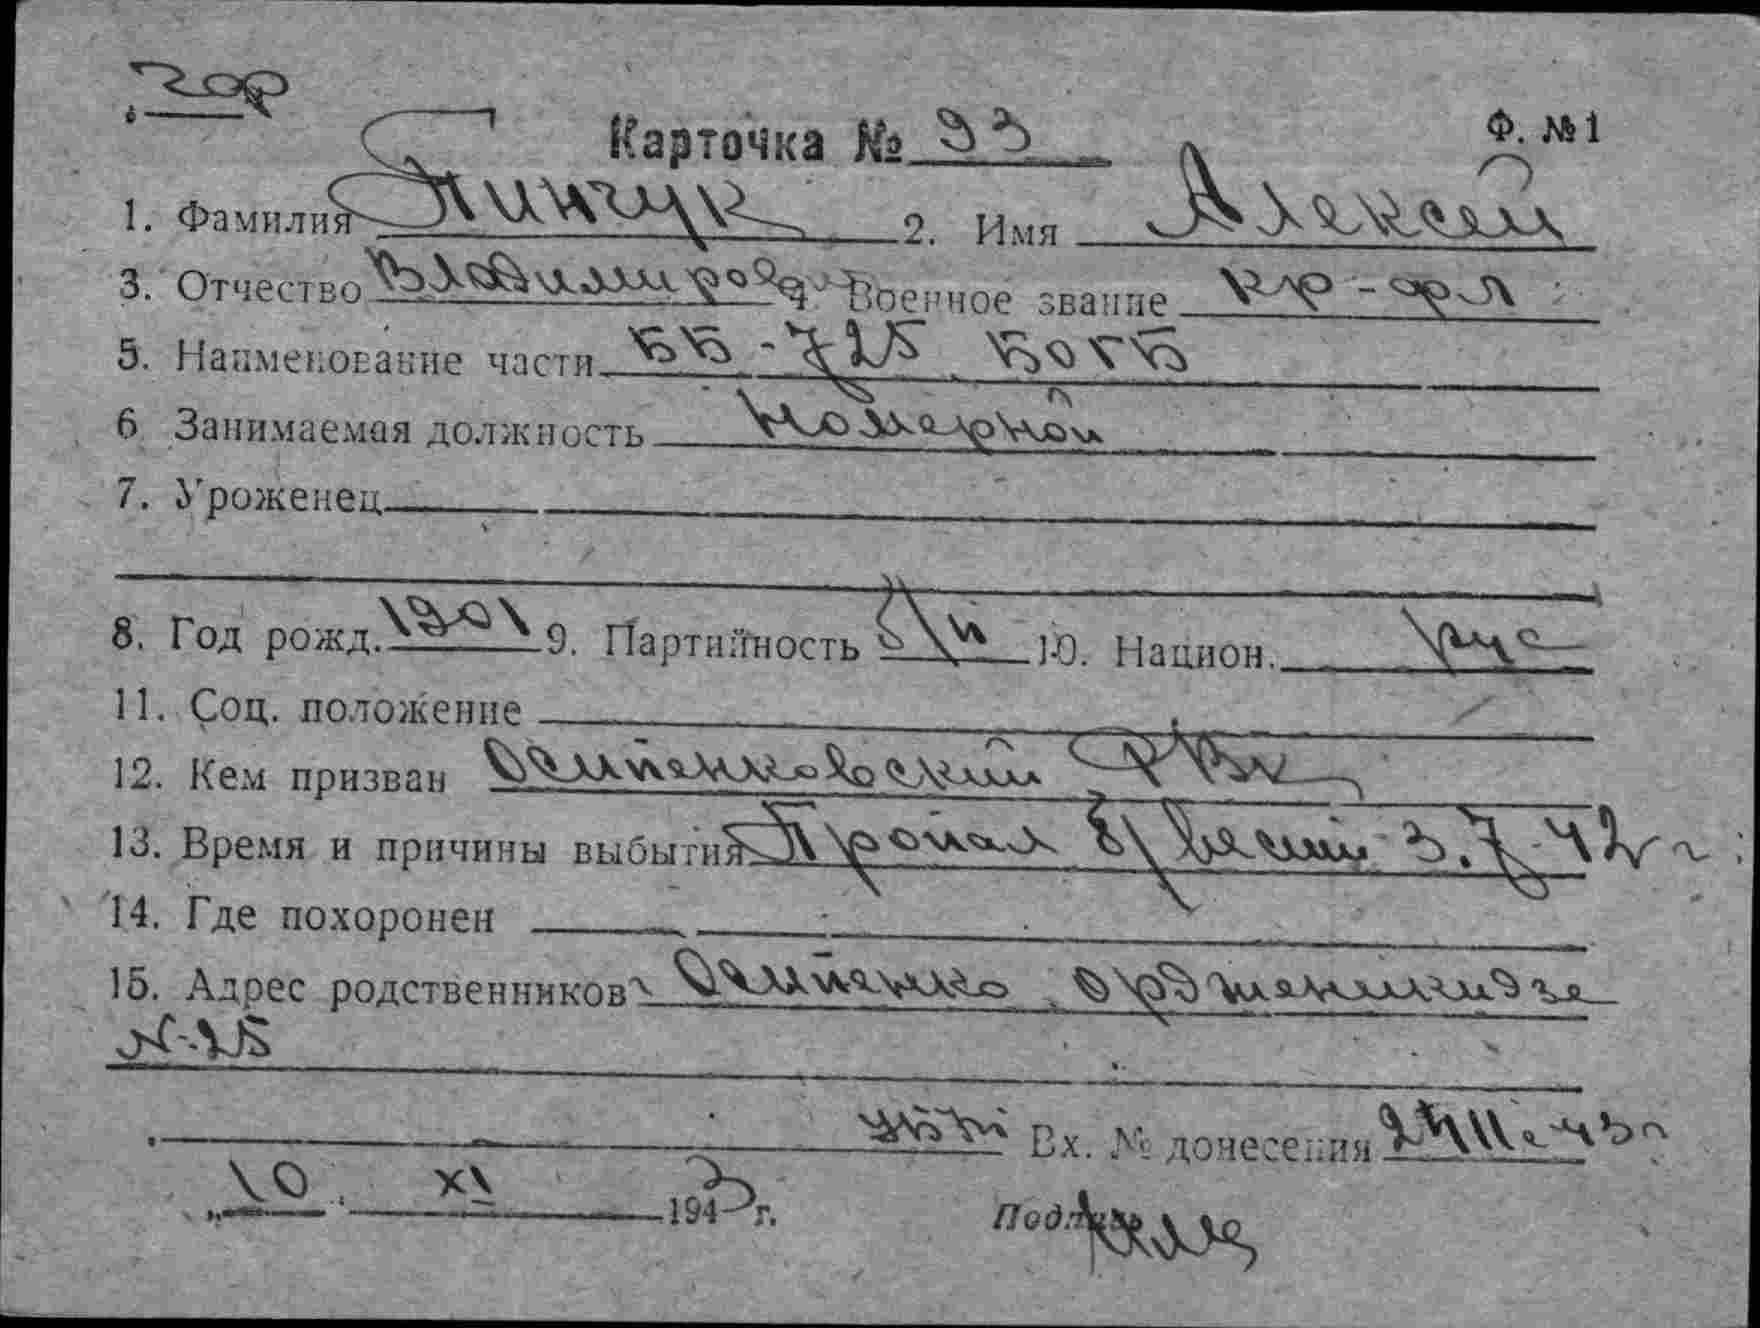 Карточка № 93
Ф. №1
1. Фамилия Пинчук 2. Имя Алексей
3. Отчество Владимиров. 4. Военное звание кр-арм
5. Наименование части ББ-725 БОГБ
6 Занимаемая должность Номерной
7. Уроженец
8. Год рожд. 1901 9. Партийность б/п 10. Национ. рус
11. Соц. положение
12. Кем призван РВК
13. Время и причины выбытия Пропал б/вести 3.7.42 г
14. Где похоронен
15. Адрес родственников Орджоникидзе
№-25
Вх. № донесения
„10. XI 1943 г.
Подпись